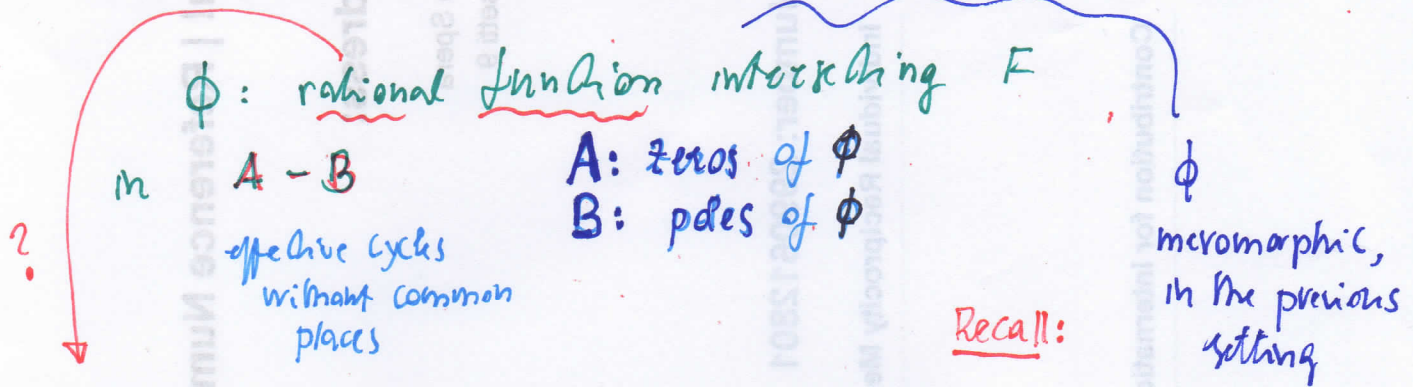 ϕ : rational function intersecting F
in A - B
A: zeros of ϕ
B: poles of ϕ
effective cycles
without common
places
?
Recall:
ϕ
meromorphic,
in the previous
setting